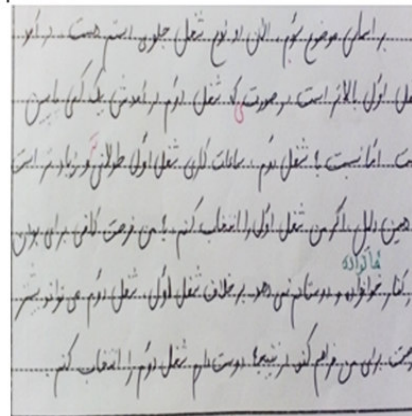 بر اساس موضوع سوّم، الان دو نوع شغل جلوی اسم هست. درآمد
شغل اوّل بالاتر است در صورتی که شغل دوّم درآمدش یک کمی پایین
ست. امّا نسبت با شغل دوم، ساعات کاری شغل اوّل طولانی و زیادتر است
همین دلیل، اگر من شغل اوّل را انتخاب کنم، با من فرصت کافی برای بودن
خانواده
کنار خوانواده و دوستانم نمی دهد. بر خلاف شغل اوّل، شغل دوّم می تواند بیشتر
صت برای من فراهم کند در نتیجه دوست دارم شغل دوّم را انتخاب کنم.